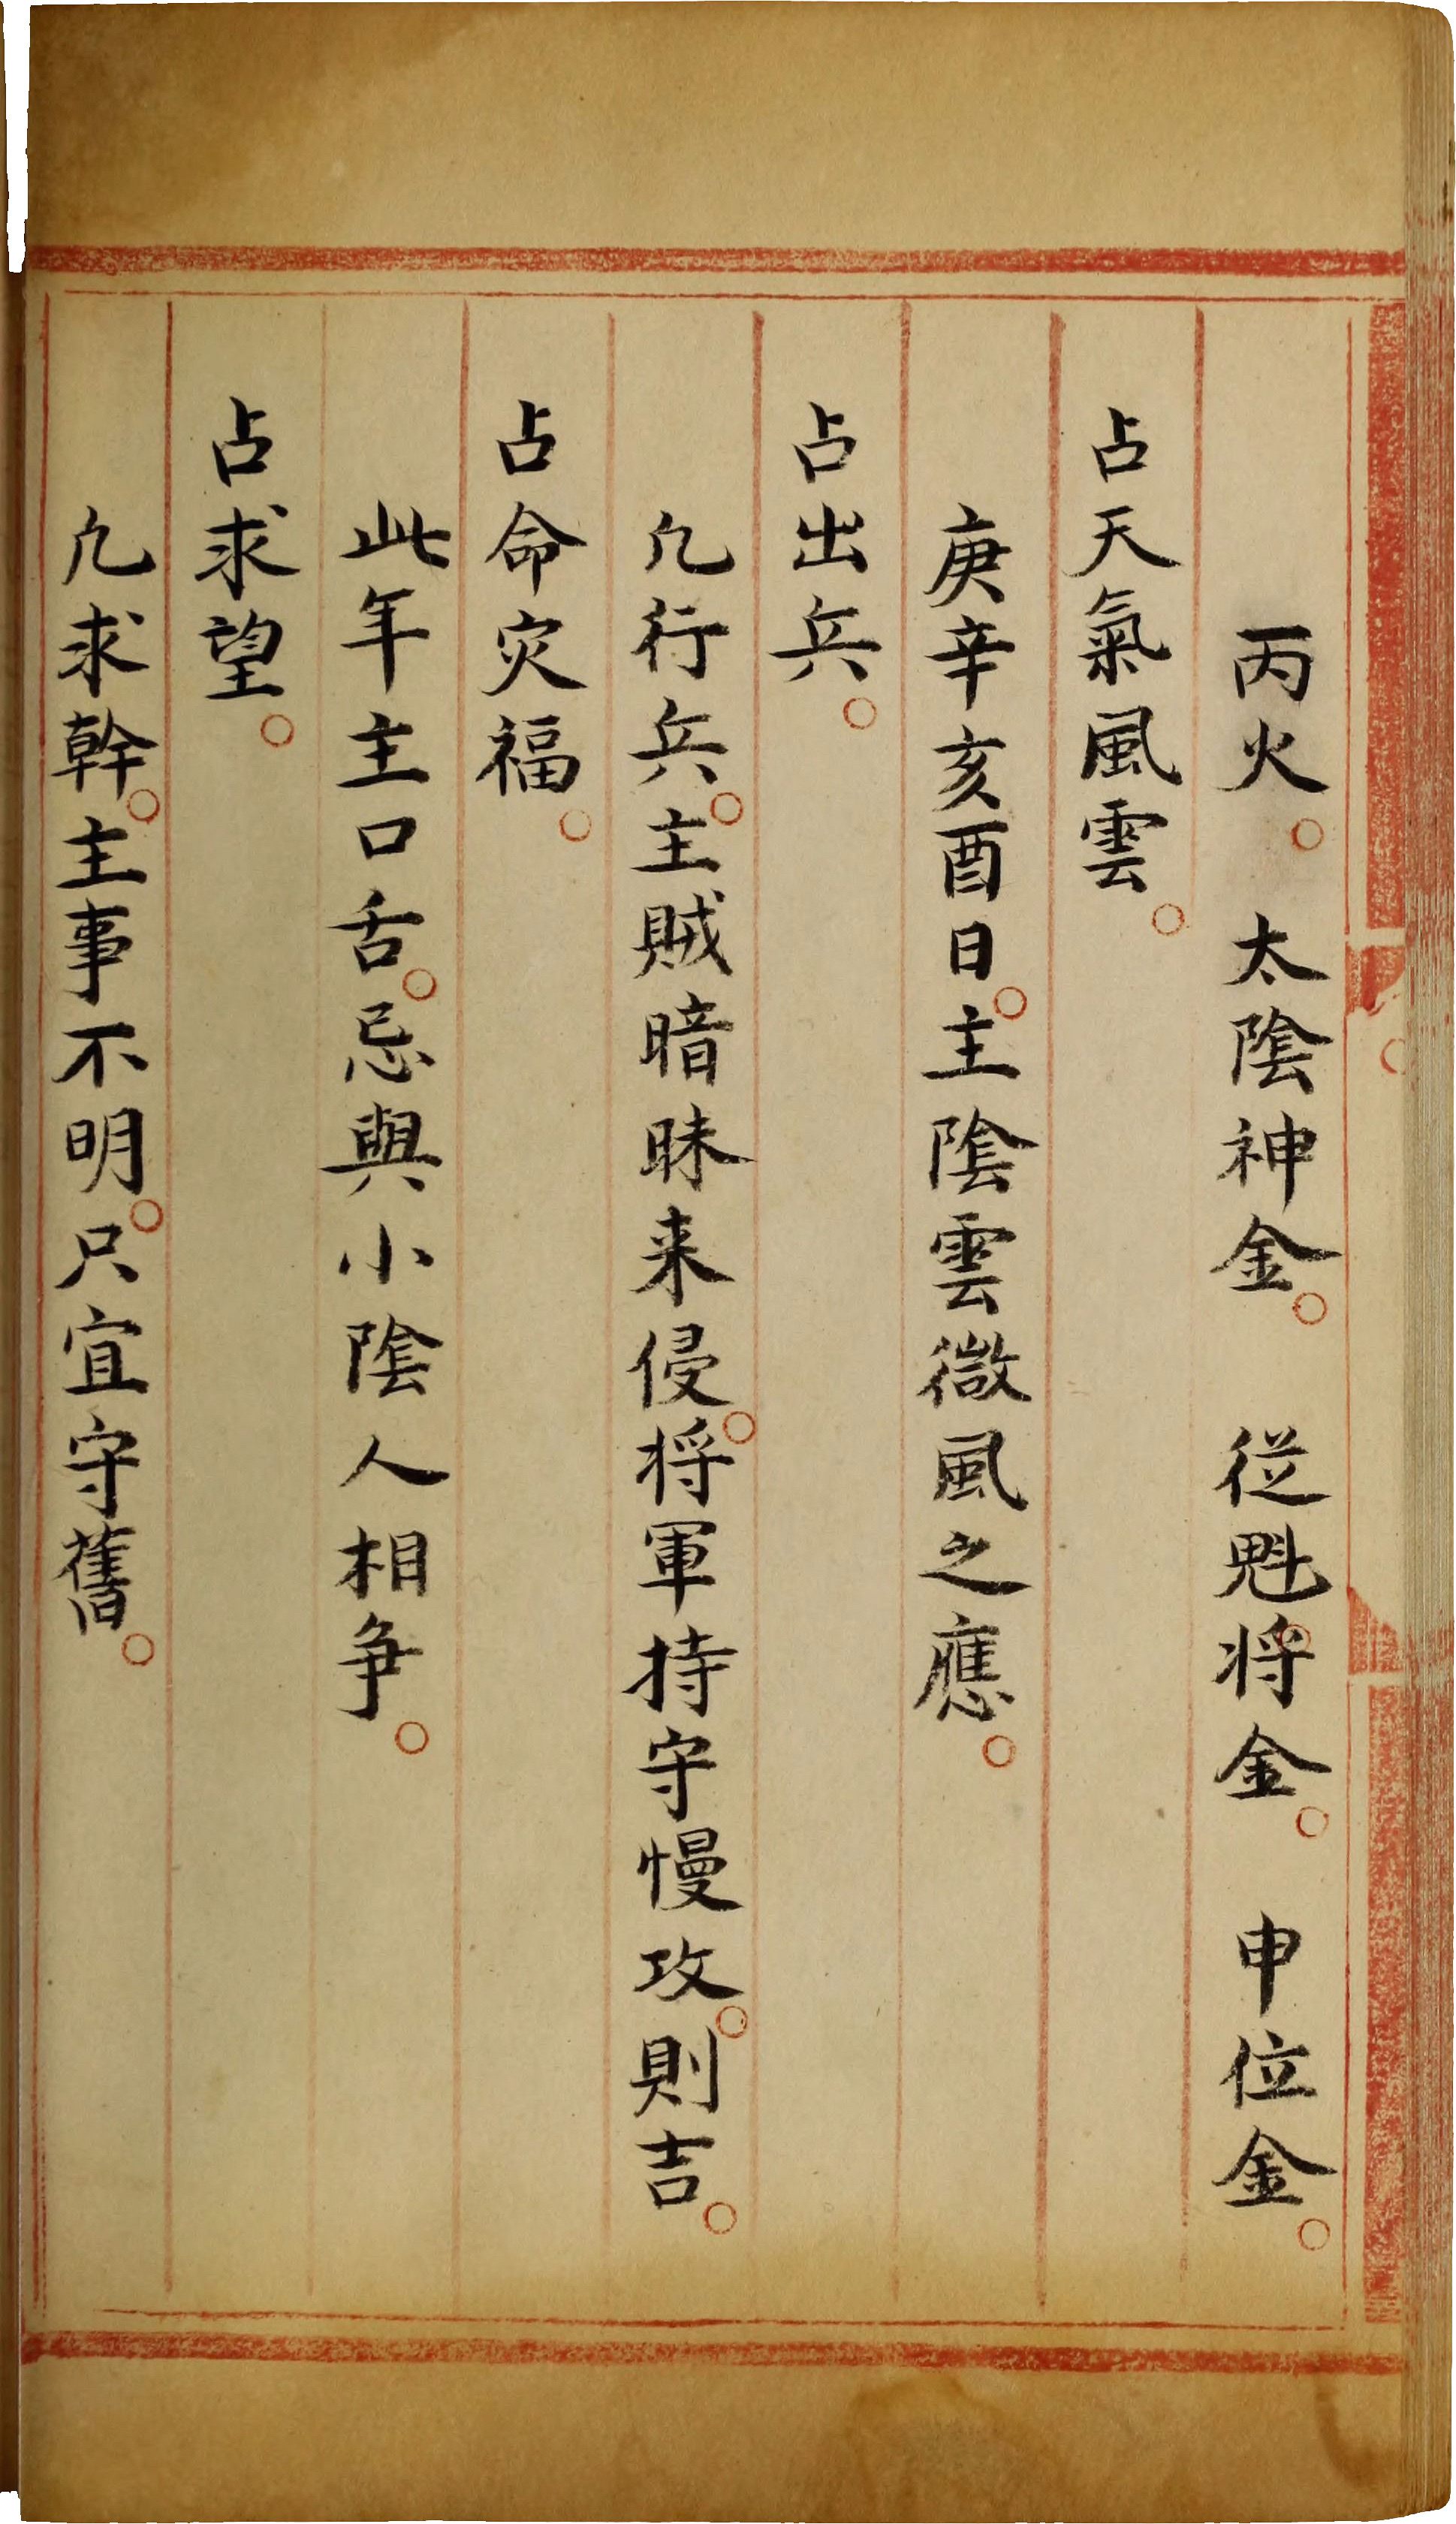 丙火。　太陰神金。　從魁将金。　申位金。
占天氣風雲。
庚辛亥酉日。主陰雲微風之應。
占出兵。
凢行兵。主賊暗昧来侵。将軍持守慢攻。則吉。
占命灾福。
此年主口舌。忌與小陰人相争。
占求望。
凢求幹。主事不明。只宜守舊。